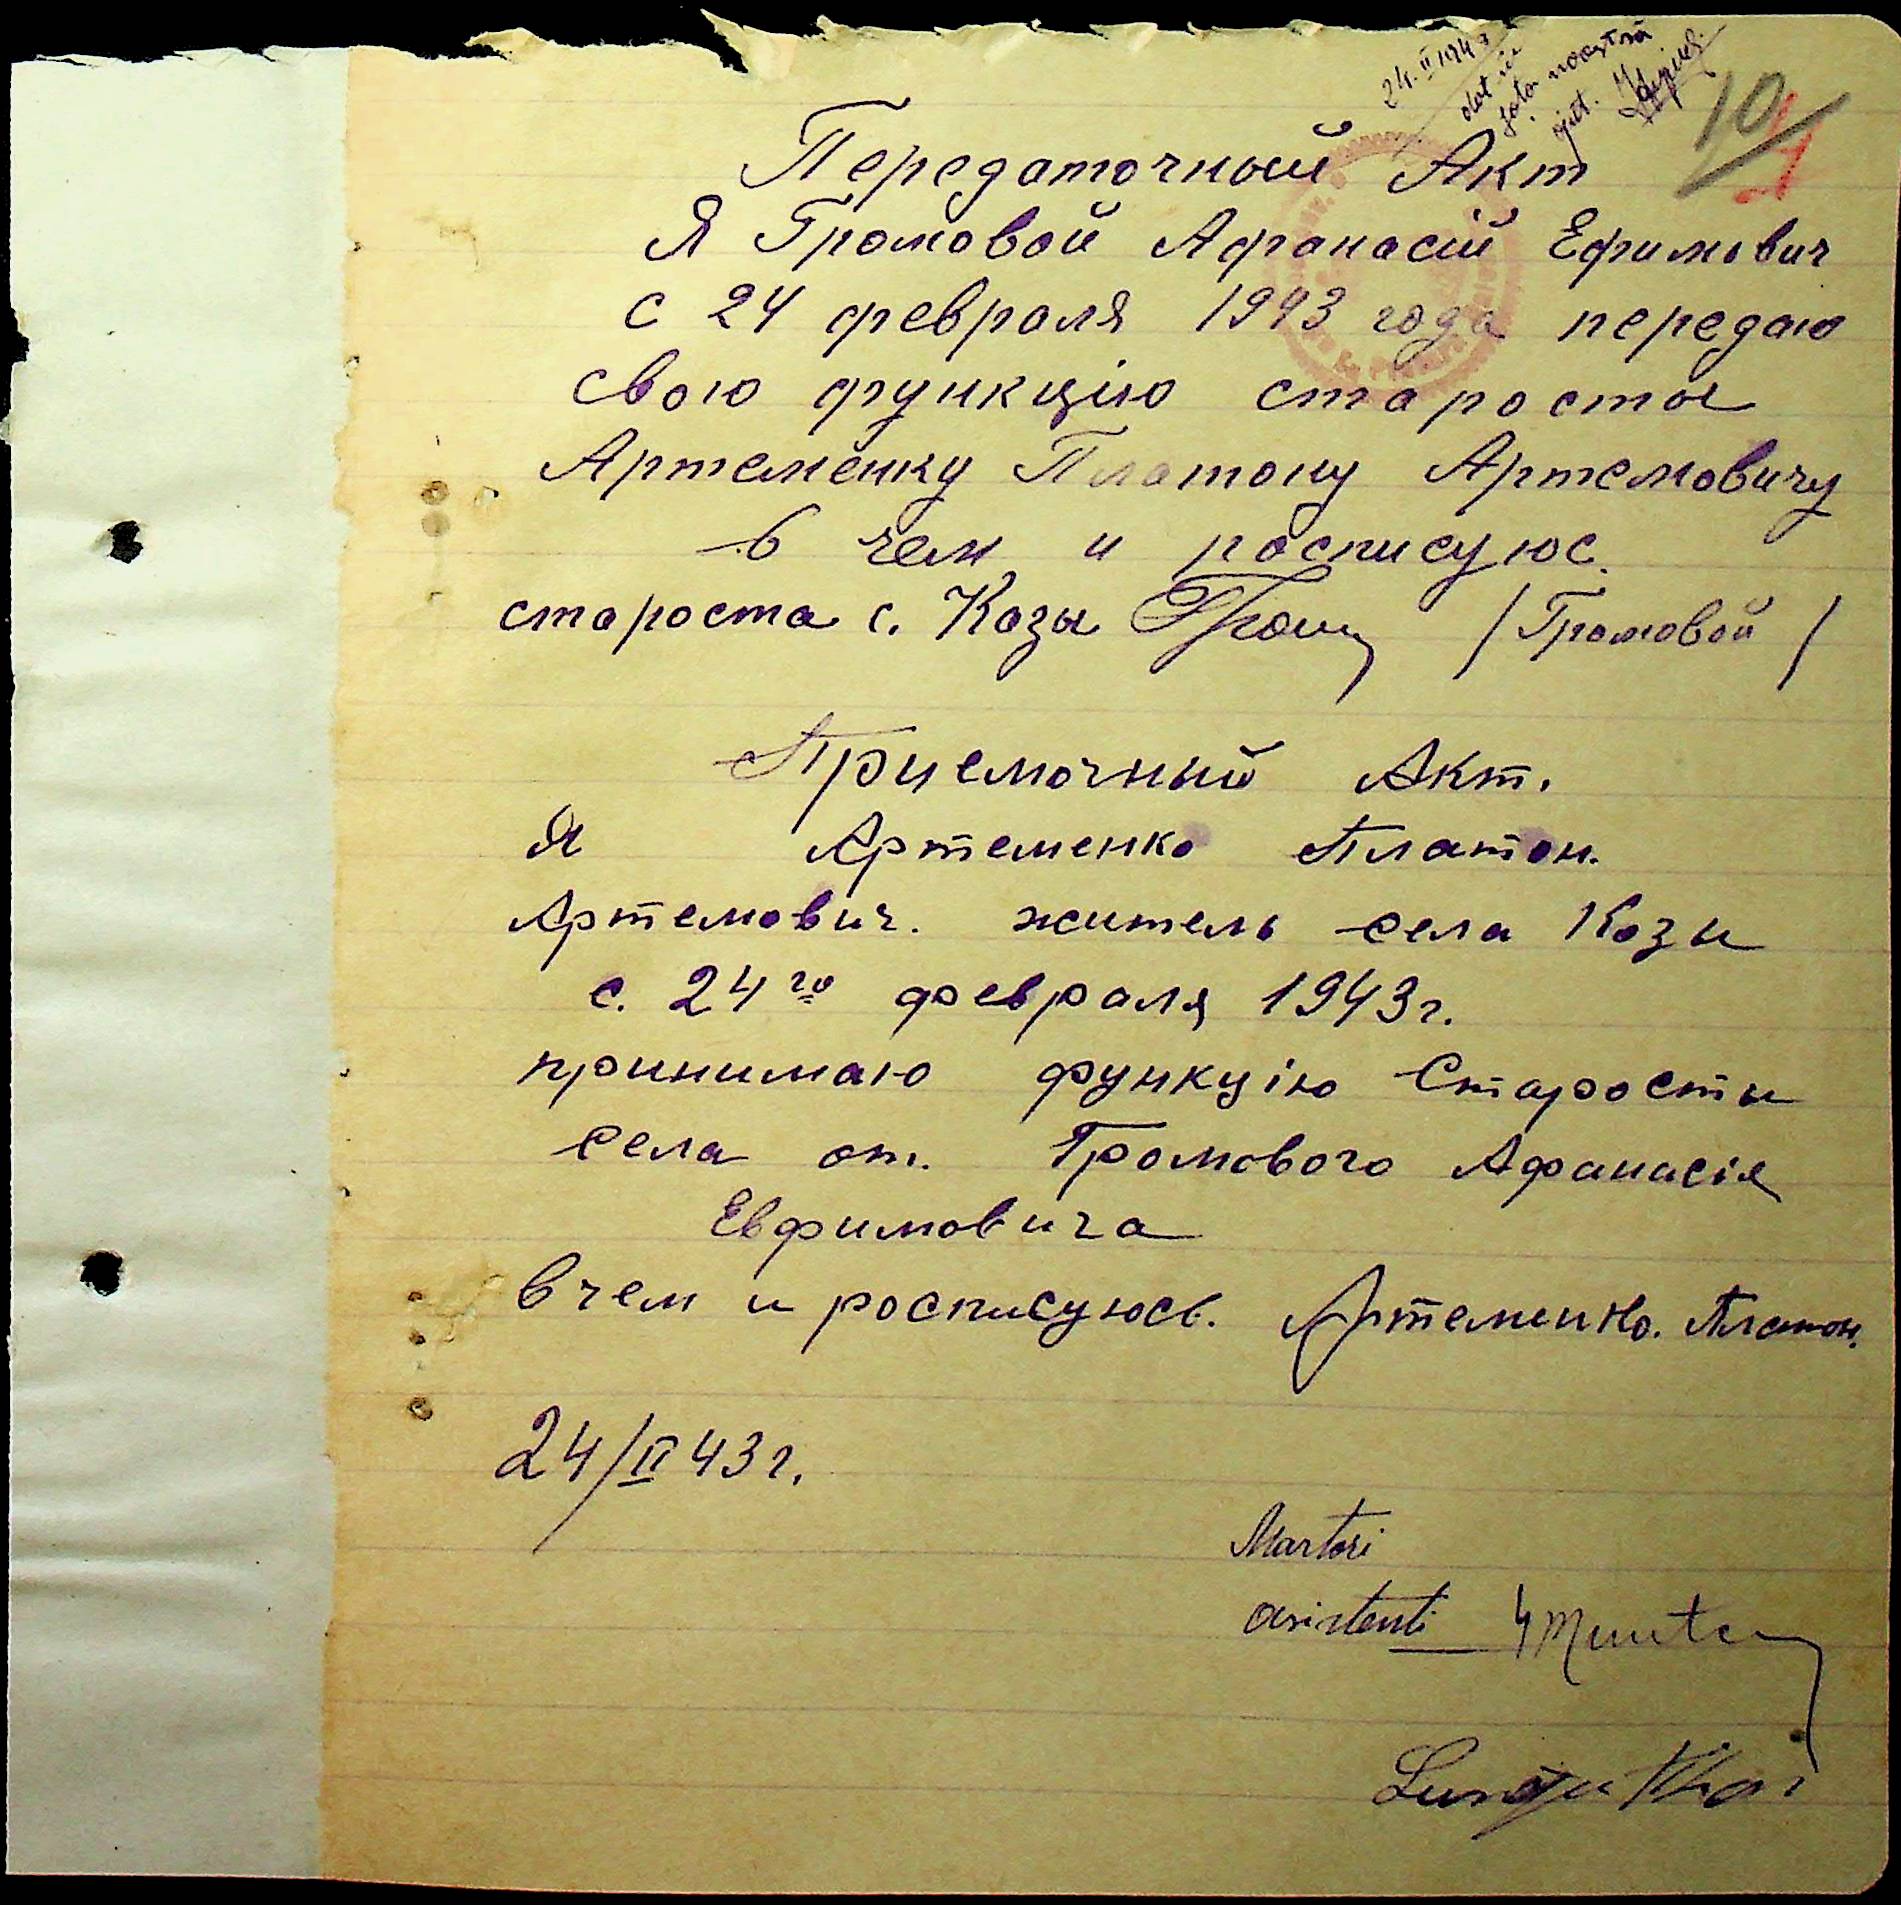 24. II 1943
dat în
fața noastră
10
Передаточный Акт
Я Громовой Афанасій Ефимович
с 24 февраля 1943 года передаю
свою функцію старосты
Артеменку Платону Артемовичу
в чем и росписуюс.
староста с. Козы Гром /Громовой/
Приемочный Акт.
Я Артеменко Платон.
Артемович. житель села Козы
с. 24го февраля 1943г.
принимаю функцію Старосты
села от. Громового Афанасія
Евфимовича
в чем и росписуюсь. Артеменко. Платон.
24/II 43 г.
Martori
asistenti Munte
Lungu